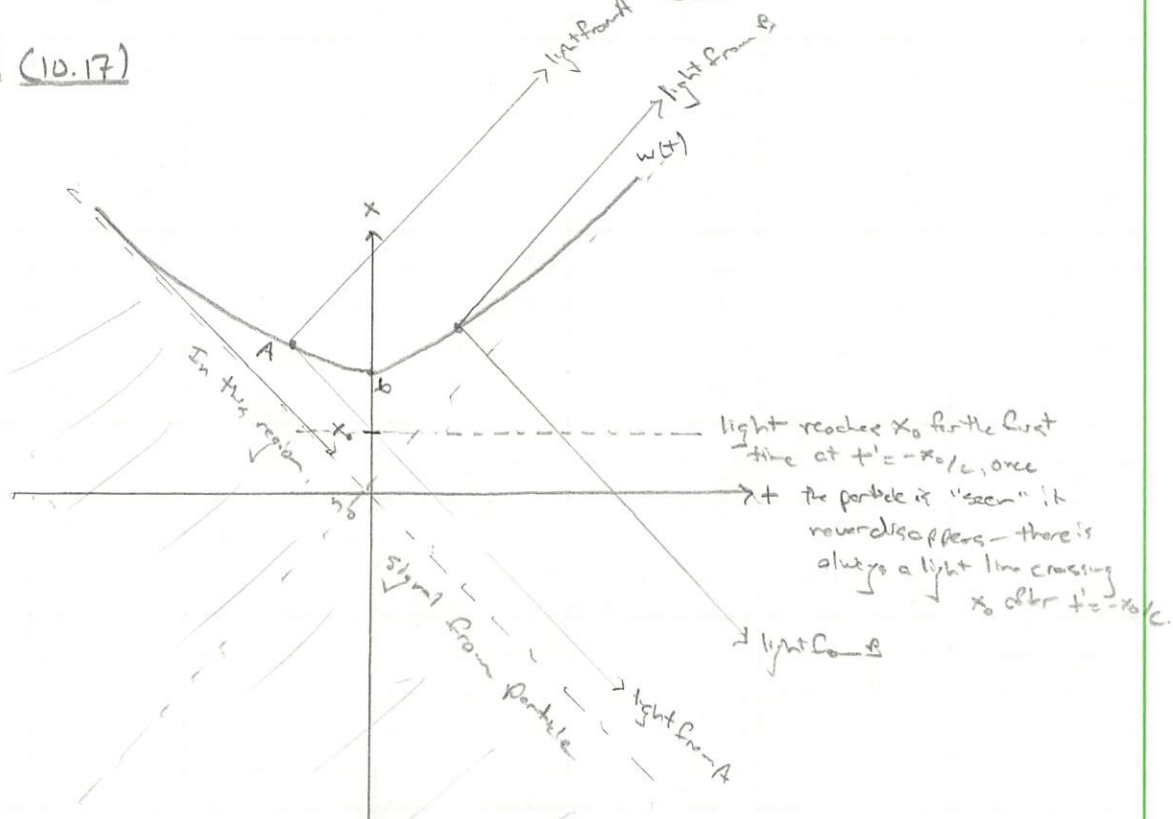 (10.17)
light from A
light from B
w(t)
x
A
b
In this region
x₀
light reaches x₀ for the first
time at t' = -x₀/c, once
t the particle is "seen" it
never disappers - there is
always a light line crossing
x₀ after t' = -x₀/c.
no
signal from particle
light from B
light from A